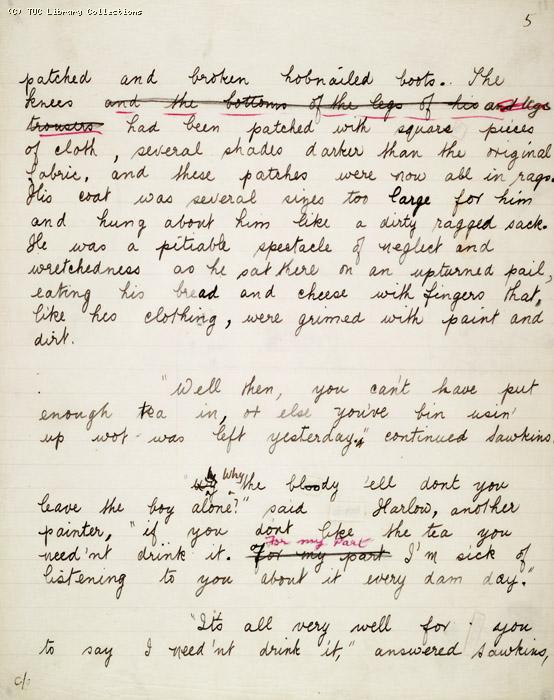 (C) TUC Library Collections
5
patched and broken hobnailed boots. The
knees and the bottoms of the legs of his and legs
trousers had been patched with square pieces
of cloth, several shades darker than the original
fabric, and these patches were now all in rags.
His coat was several sizes too large for him
and hung about him like a dirty ragged sack.
He was a pitiable spectacle of neglect and
wretchedness as he sat there on an upturned pail,
eating his bread and cheese with fingers that,
like his clothing, were grimed with paint and
dirt.
"Well then, you can't have put
enough tea in, or else you've bin usin'
up wot was left yesterday," continued Sawkins.
"Why the bloody 'ell dont you
leave the boy alone?" said Harlow, another
painter, "if you dont like the tea you
For my part
need'nt drink it. For my part I'm sick of
listening to you about it every dam day."
"It's all very well for you
to say I need'nt drink it," answered Sawkins,